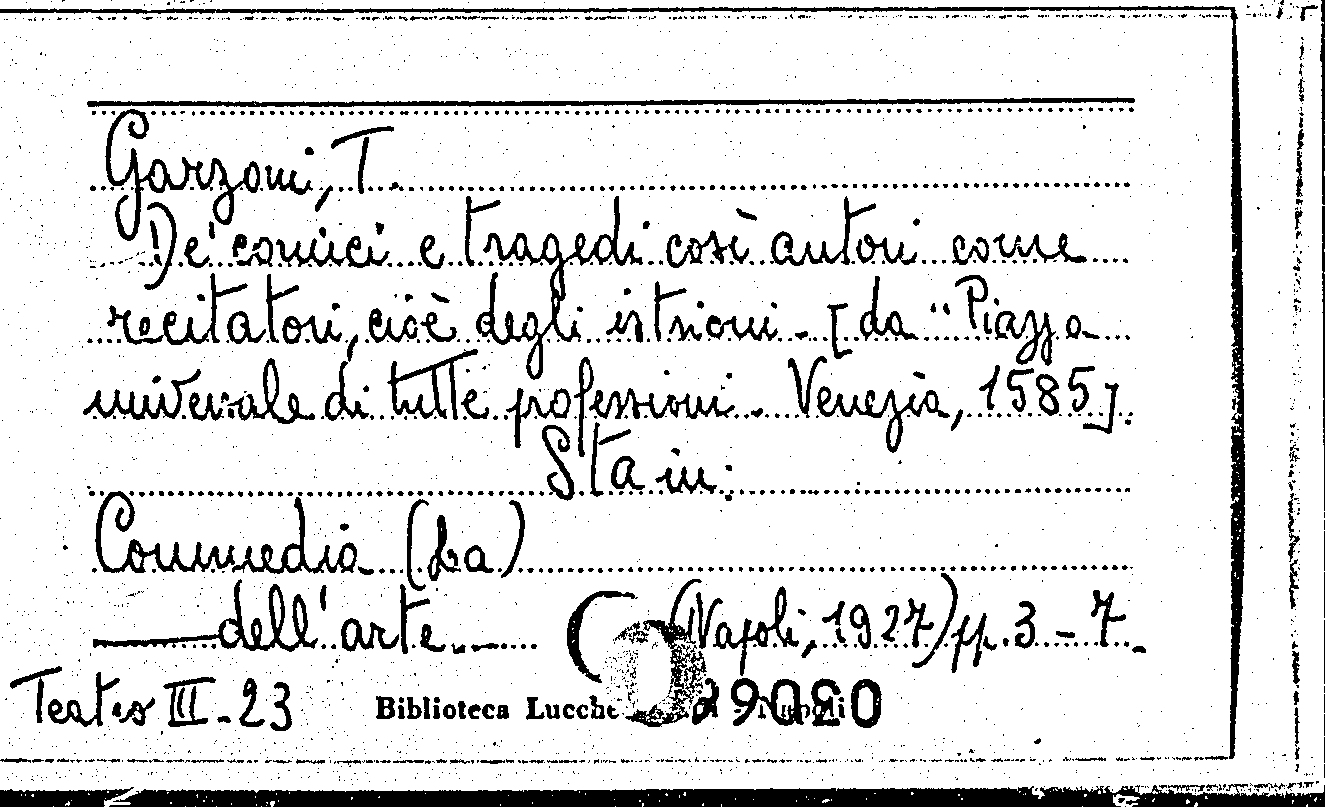 Garzoni, T.
De' comici e tragedi così autori come
recitatori, cioè degli istrioni. - [da "Piazza
universale di tutte professioni. Venezia, 1585].
Sta in:
Commedia (La)
dell'arte. (Napoli, 1927) pp. 3 - 7.
Teatro III - 23 Biblioteca Lucche